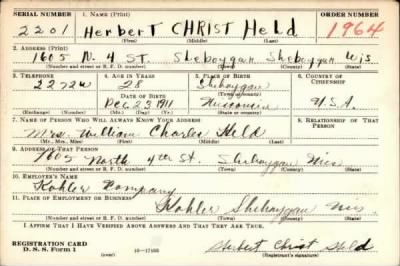 SERIAL NUMBER 1. NAME (Print) ORDER NUMBER
2201 Herbert CHRIST Held 1964
(First) (Middle) (Last)
2. ADDRESS (Print)
1605 N. 4 ST. Sheboygan Sheboygan Wis.
(Number and street or R. F. D. number) (Town) (County) (State)
3. TELEPHONE 4. AGE IN YEARS 5. PLACE OF BIRTH 6. COUNTRY OF CITIZENSHIP
2272W 28 Sheboygan
DATE OF BIRTH (Town or county)
Dec 23 1911 Wisconsin U.S.A.
(Exchange) (Number) (Mo.) (Day) (Yr.) (State or country)
7. NAME OF PERSON WHO WILL ALWAYS KNOW YOUR ADDRESS 8. RELATIONSHIP OF THAT PERSON
Mrs. William Charles Held
(Mr., Mrs., Miss) (First) (Middle) (Last)
9. ADDRESS OF THAT PERSON
1605 North 4th St. Sheboygan Wis
(Number and street or R. F. D. number) (Town) (County) (State)
10. EMPLOYER'S NAME
Kohler Company
11. PLACE OF EMPLOYMENT OR BUSINESS
Kohler Sheboygan Wis.
(Number and street or R. F. D. number) (Town) (County) (State)
I AFFIRM THAT I HAVE VERIFIED ABOVE ANSWERS AND THAT THEY ARE TRUE.
REGISTRATION CARD
D. S. S. Form 1 (over) Herbert Christ Held
(Registrant's signature)